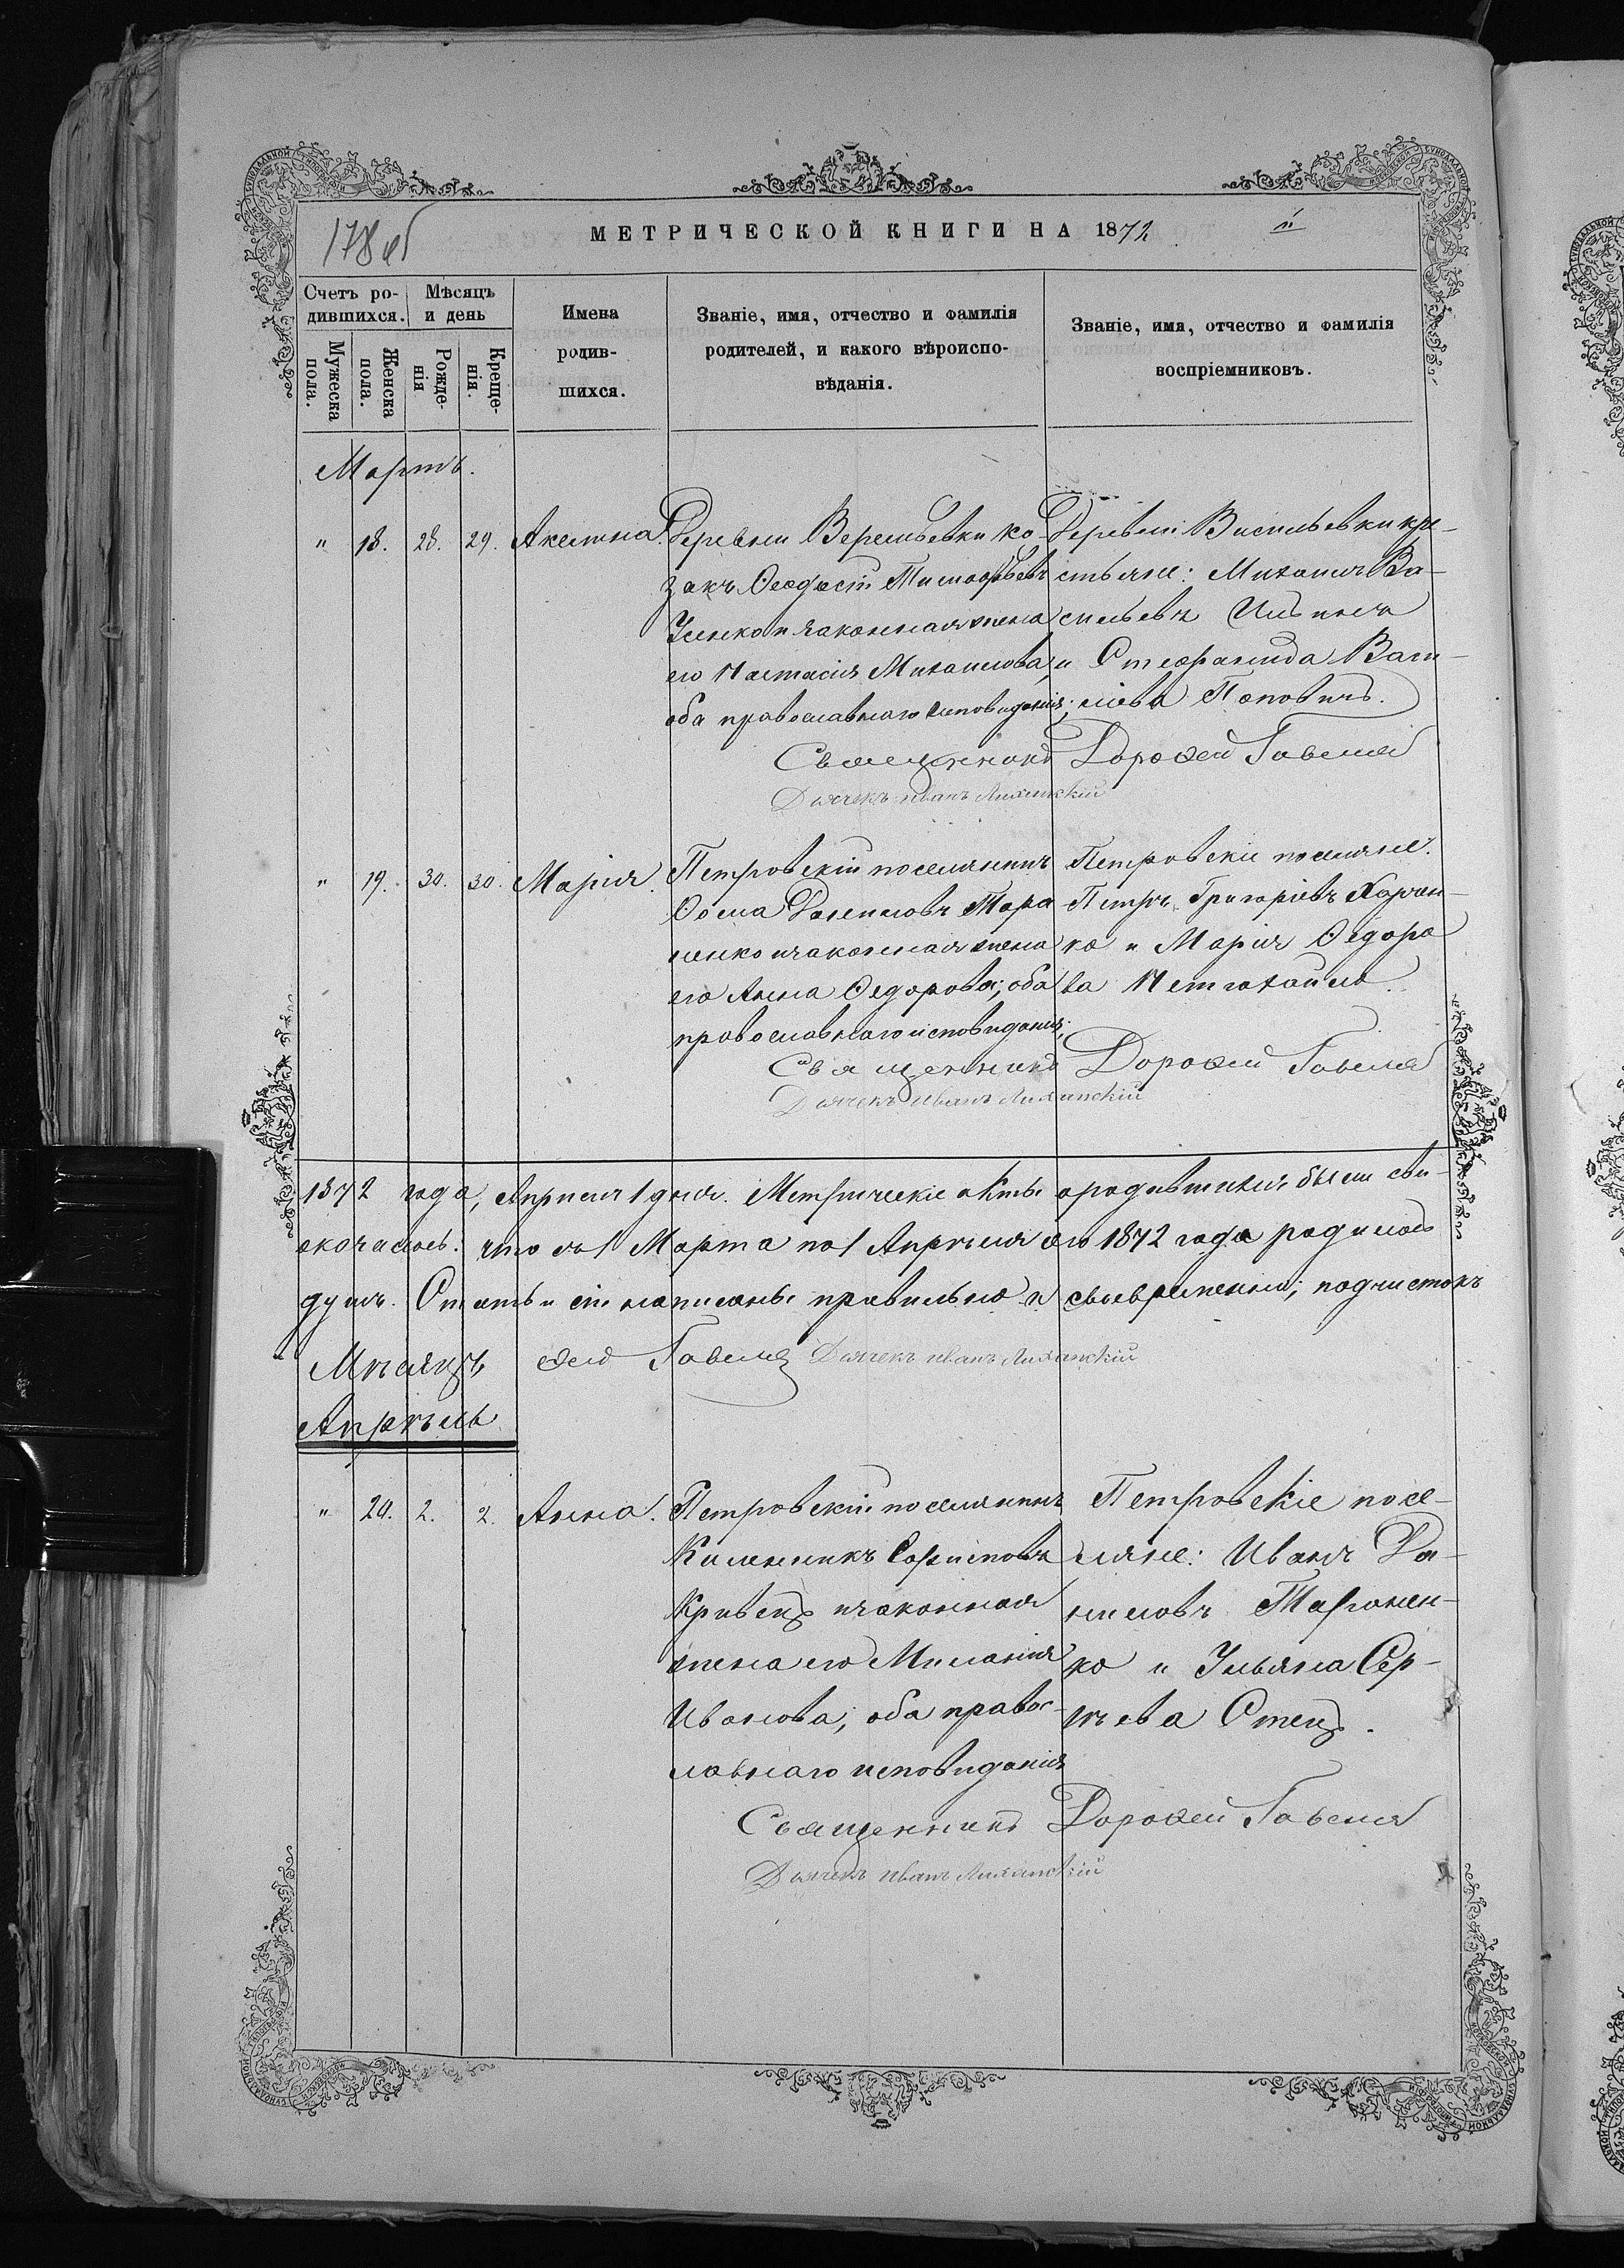 178 об
МЕТРИЧЕСКОЙ КНИГИ НА 1872
Счетъ ро-
дившихся.
Мѣсяцъ
и день
Мужеска
пола.
Женска
пола.
Рожде-
нія
Креще-
нія.
Имена
родив-
шихся.
Званіе, имя, отчество и фамилія
родителей, и какого вѣроиспо-
вѣданія.
Званіе, имя, отчество и фамилія
воспріемниковъ.
Мартъ.
" 18. 28. 29. Акелина.
Деревни Веремьевки ко-
закъ Ѳеодосій
и законная жена
его Настасія Михаилова,
оба православнаго исповиданія;
Деревни Васильевки кре-
стьяне: Михаилъ Ва-
сильевъ Ильинъ
и Стефанида Васи-
лієва Поповичъ.
Священникъ Дорофей Гавеля
Дьячекъ Иванъ
" 19. 30. 30. Марія.
Петровскій поселянинъ
Ѳома Даниловъ Тара
ненко и законная жена
его Анна Ѳедорова; оба
православнаго исповиданія;
Петровскіе поселяне:
Петръ Григоріевъ Харчен-
ко и Марія Ѳедоро
ва
Священникъ Дорофей Гавеля
Дьячекъ Иванъ
1872 года, Априля 1 дня. Метрическіе акты о родившихся были сви-
оказалось: что съ 1 Марта по 1 Апрѣля сего 1872 года родилось
душъ. Статьи сіи написаны правильно и своевременно; подчистокъ
Мѣсяцъ
фей Гавеля Дьячекъ Иванъ
Апрѣль
" 20. 2. 2. Анна.
Петровскій поселянинъ
Калиникъ
Кривецъ и законная
жена его Миланія
Иванова; оба правос-
лавнаго исповиданія
Петровскіе посе-
ляне: Иванъ Да-
ниловъ Таранен-
ко и Ульяна Сер-
гѣева Стецъ.
Священникъ Дорофей Гавеля
Дьячекъ Иванъ